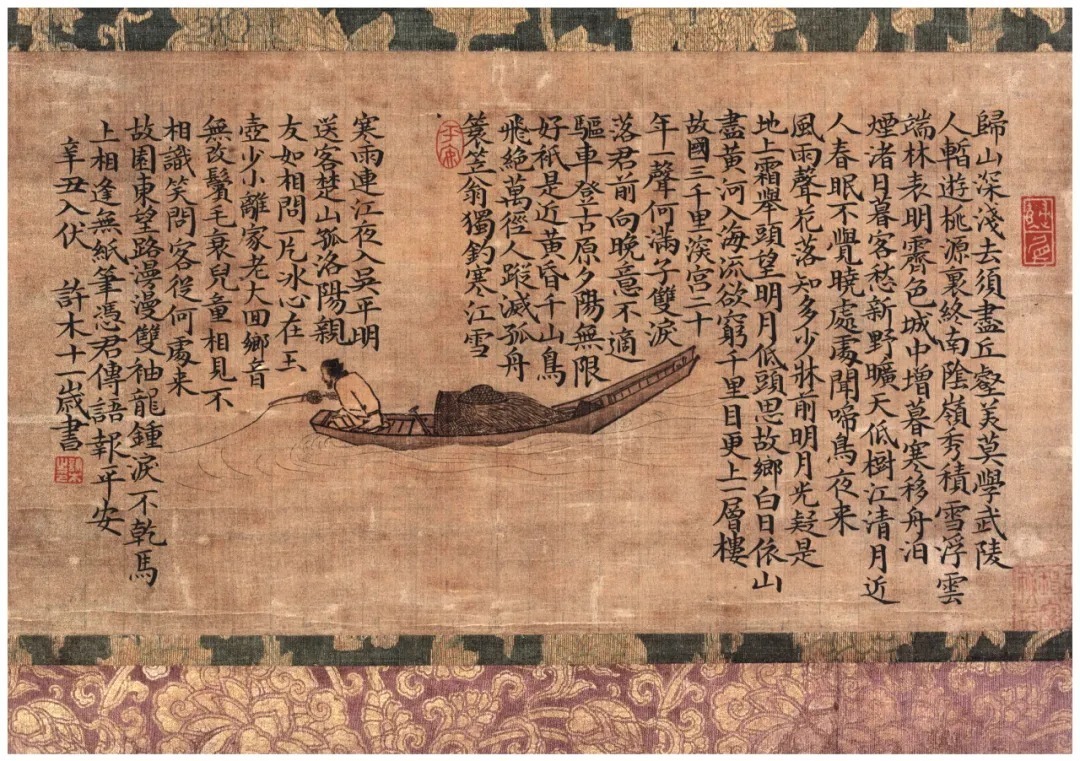 歸山深淺去須盡丘壑美莫學武陵
人暫遊桃源裏終南陰嶺秀積雪浮雲
端林表明霽色城中增暮寒移舟泊
煙渚日暮客愁新野曠天低樹江清月近
人春眠不覺曉處處聞啼鳥夜来
風雨聲花落知多少牀前明月光疑是
地上霜舉頭望明月低頭思故鄉白日依山
盡黃河入海流欲窮千里目更上一層樓
故國三千里深宮二十
年一聲何滿子雙淚
落君前向晚意不適
驅車登古原夕陽無限
好衹是近黃昏千山鳥
飛絕萬徑人蹤滅孤舟
簑笠翁獨釣寒江雪
平安
寒雨連江夜入吳平明
送客楚山孤洛陽親
友如相問一片冰心在玉
壺少小離家老大回鄉音
無改鬢毛衰兒童相見不
相識笑問客從何處来
故園東望路漫漫雙袖龍鍾淚不乾馬
上相逢無紙筆憑君傳語報平安
辛丑入伏 許木十一歲書